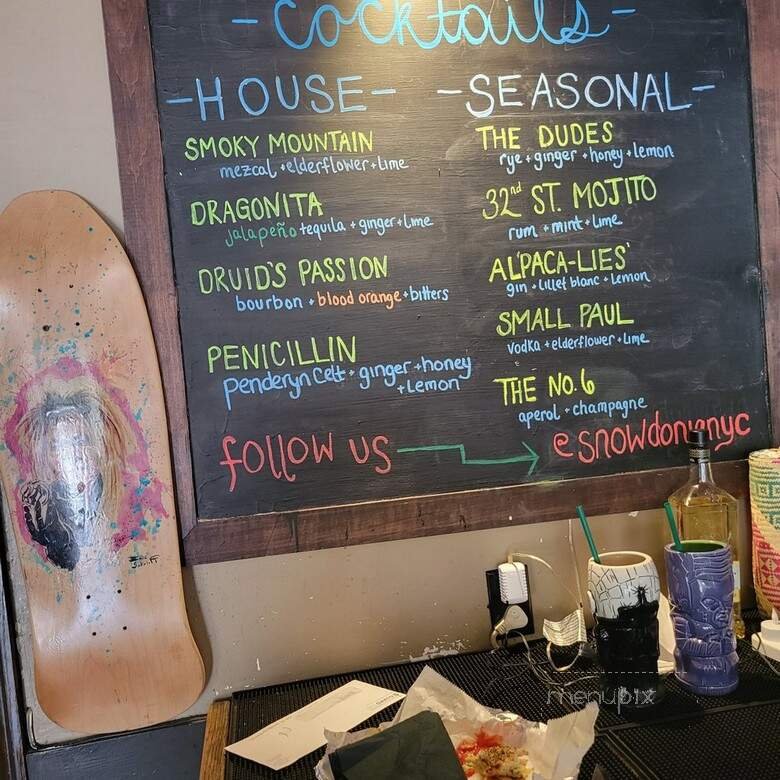 - Cocktails -
- HOUSE -
SMOKY MOUNTAIN
mezcal + elderflower + lime
DRAGONITA
jalapeño tequila + ginger + lime
DRUID'S PASSION
bourbon + blood orange + bitters
PENICILLIN
Penderyn Celt + ginger + honey
+ lemon
- SEASONAL -
THE DUDES
rye + ginger + honey + lemon
32nd ST. MOJITO
rum + mint + lime
AL'PACA-LIES'
gin + lillet blanc + lemon
SMALL PAUL
vodka + elderflower + lime
THE NO.6
aperol + champagne
follow us
@snowdonianyc
menupix